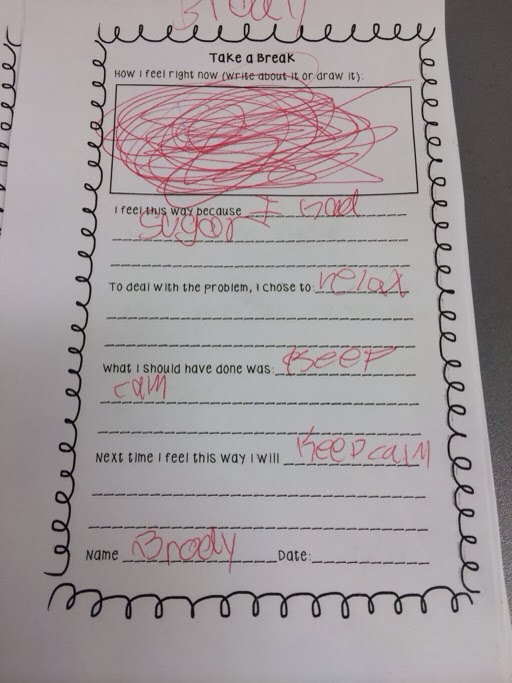 Brody
Take a Break
How I feel right now (write about it or draw it):
I feel this way because I had
sugar
To deal with the problem, I chose to: relax
What I should have done was: keep
calm
Next time I feel this way I will keep calm
Name Brody Date: